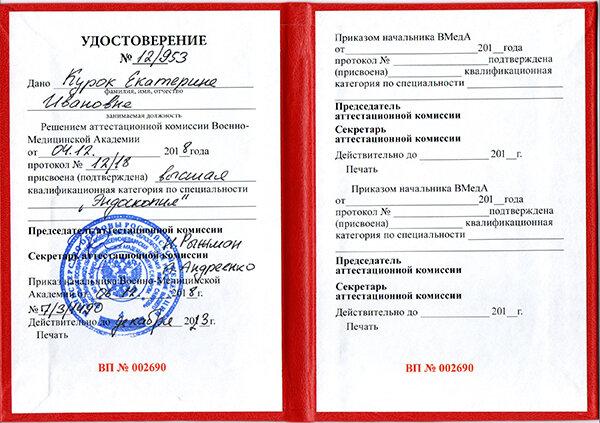 УДОСТОВЕРЕНИЕ
№ 12/953
Дано Курок Екатерине
фамилия, имя, отчество
Ивановне
занимаемая должность
Решением аттестационной комиссии Военно-
Медицинской Академии
от 04.12. 2018 года
протокол № 12/18
присвоена (подтверждена) высшая
квалификационная категория по специальности
„Эндоскопия"
Председатель аттестационной комиссии
Рыжман
Секретарь аттестационной комиссии
Андреенко
Приказ начальника Военно-Медицинской
Академии от 06.12. 2018 г.
№ 7/3/1490
Действительно до декабря 2023 г.
Печать
ВП № 002690
Приказом начальника ВМедА
от 201__года
протокол № подтверждена
(присвоена) квалификационная
категория по специальности
Председатель
аттестационной комиссии
Секретарь
аттестационной комиссии
Действительно до 201__г.
Печать
Приказом начальника ВМедА
от 201__года
протокол № подтверждена
(присвоена) квалификационная
категория по специальности
Председатель
аттестационной комиссии
Секретарь
аттестационной комиссии
Действительно до 201__г.
Печать
ВП № 002690